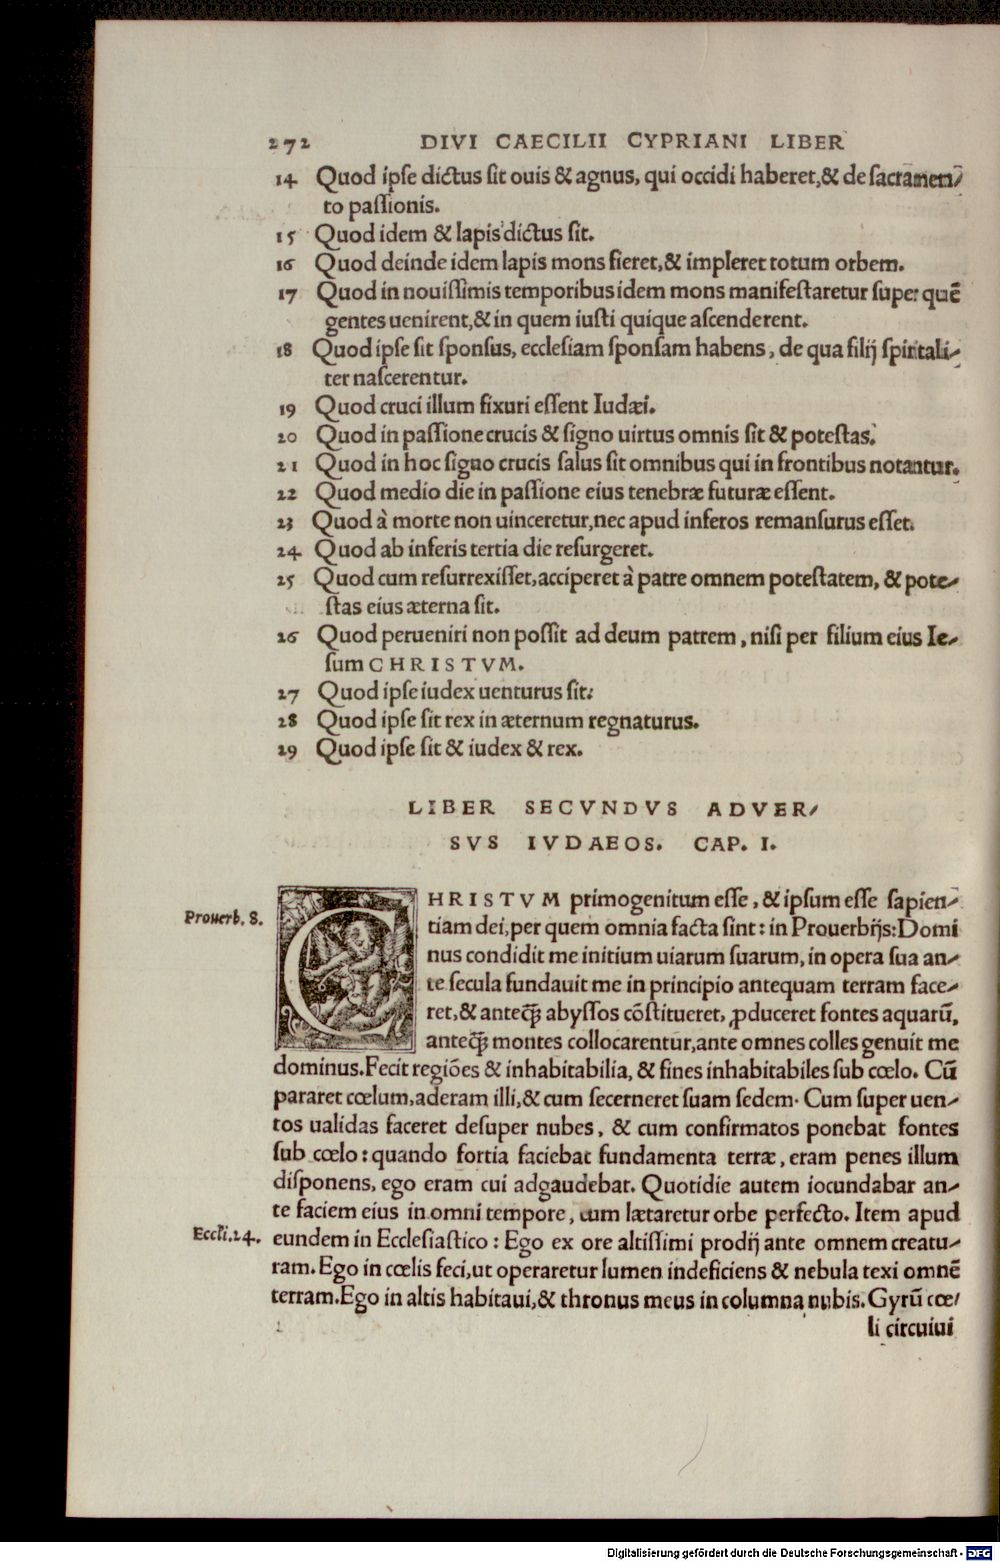 272 DIVI CAECILII CYPRIANI LIBER
14 Quod ipſe dictus ſit ouis & agnus, qui occidi haberet,& de ſacramen/
to paſſionis.
15 Quod idem & lapis dictus ſit.
16 Quod deinde idem lapis mons fieret,& impleret totum orbem.
17 Quod in nouiſſimis temporibus idem mons manifeſtaretur super quē
gentes uenirent,& in quem iuſti quique aſcenderent.
18 Quod ipſe ſit ſponſus, eccleſiam ſponſam habens, de qua filij ſpiritali/
ter naſcerentur.
19 Quod cruci illum fixuri eſſent Iudæi.
20 Quod in paſſione crucis & ſigno uirtus omnis ſit & poteſtas.
21 Quod in hoc ſigno crucis ſalus ſit omnibus qui in frontibus notantur.
22 Quod medio die in paſſione eius tenebræ futuræ eſſent.
23 Quod à morte non uinceretur,nec apud inferos remanſurus eſſet.
24 Quod ab inferis tertia die reſurgeret.
25 Quod cum reſurrexiſſet,acciperet à patre omnem poteſtatem, & pote/
ſtas eius æterna ſit.
26 Quod perueniri non poſſit ad deum patrem, niſi per filium eius Ie/
ſum CHRISTVM.
27 Quod ipſe iudex uenturus ſit.
28 Quod ipſe ſit rex in æternum regnaturus.
29 Quod ipſe ſit & iudex & rex.
LIBER SECVNDVS ADVER/
SVS IVDAEOS. CAP. I.
Prouerb. 8.
CHRISTVM primogenitum eſſe, & ipſum eſſe ſapien/
tiam dei,per quem omnia facta ſint: in Prouerbijs:Domi
nus condidit me initium uiarum ſuarum, in opera ſua an/
te ſecula fundauit me in principio antequam terram face/
ret,& anteq̃ꝫ abyſſos cōſtitueret, ꝓduceret fontes aquarū,
anteq̃ꝫ montes collocarentur,ante omnes colles genuit me
dominus.Fecit regiões & inhabitabilia, & fines inhabitabiles ſub cœlo. Cū
pararet cœlum,aderam illi,& cum ſecerneret ſuam ſedem. Cum ſuper uen/
tos ualidas faceret deſuper nubes, & cum confirmatos ponebat fontes
ſub cœlo: quando fortia faciebat fundamenta terræ, eram penes illum
diſponens, ego eram cui adgaudebat. Quotidie autem iocundabar an/
te faciem eius in omni tempore, cum lætaretur orbe perfecto. Item apud
Eccli.24.
eundem in Eccleſiaſtico: Ego ex ore altiſſimi prodij ante omnem creatu/
ram.Ego in cœlis feci,ut operaretur lumen indeficiens & nebula texi omnē
terram.Ego in altis habitaui,& thronus meus in columna nubis. Gyrū cœ/
li circuiui
Digitalisierung gefördert durch die Deutsche Forschungsgemeinschaft - DFG